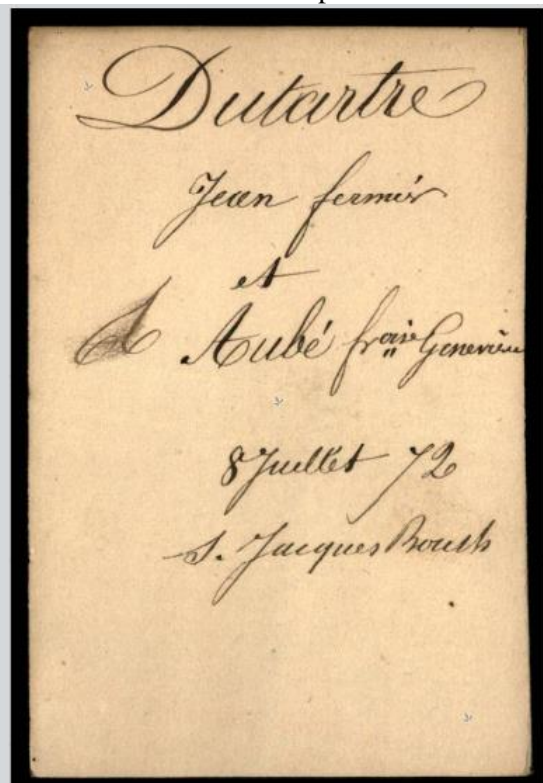 Dutartre
Jean fermin
et
A Aubé frçoise Geneviève
8 Juillet 72
S. Jacques Bouch